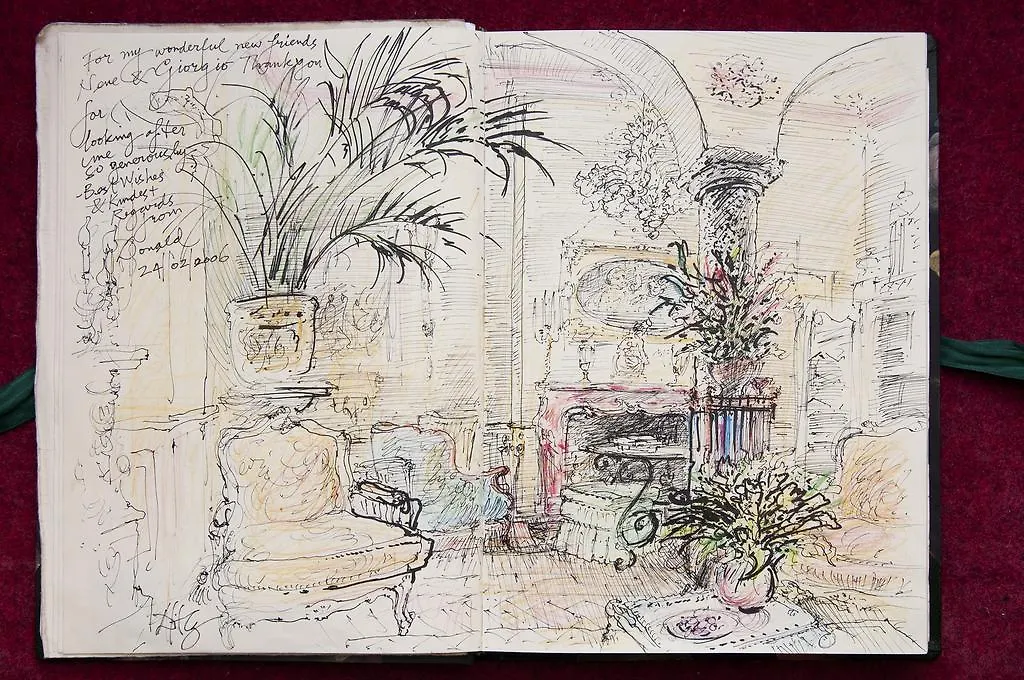 For my wonderful new friends
& Giorgio Thank you
for
looking after
me
so generously
Best Wishes
& Kindest
Regards
from
Donald
24/02/2006